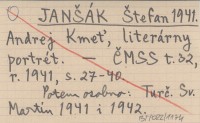 JANŠÁK Štefan 1941.
Andrej Kmeť, literárny
portrét. — ČMSS t. 32,
r. 1941, s. 27-40.
Potem osobne: Turč. Sv.
Martin 1941 i 1942.